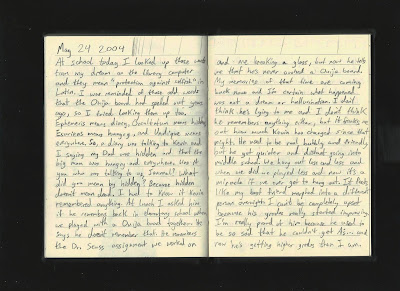 May 24 2004
At school today I looked up those words
from my dream on the library computer
and they mean "protection against selfish" in
Latin. I was reminded of these odd words
that the Ouija board had spelled out years
ago, so I tried looking them up too.
Ephemeris means diary, Occultatum means hidden,
Esuriens means hungry, and Undique means
everywhere. So, a diary was talking to Kevin and
I saying my Dad was hidden and that the
big man was hungry and everywhere. Were
you who was talking to us Journal? What
did you mean by hidden? Because hidden
doesn't mean dead. I had to know if Kevin
remembered anything. At lunch I asked him
if he remembers back in elementary school when
we played with a Ouija board together. He
says he doesn't remember that. He remembers
the Dr. Seuss assignment we worked on
and me breaking a glass, but now he tells
me that he's never owned a Ouija board.
My memories of that time are coming
back now and I'm certain what happened
was not a dream or hallucination. I don't
think he's lying to me and I don't think
he remembers anything either, but it freaks me
out how much Kevin has changed since that
night. He used to be real bubbly and friendly
but he got quieter and distant going into
middle school. We hung out less and less and
when we did he played less and now it's a
miracle if we ever get to hang out. It feels
like my best friend morphed into a different
person overnight. I can't be completely upset
because his grades really started improving.
I'm really proud of him because he used to
be so sad that he couldn't get A's... and
now he's getting higher grades than I am.